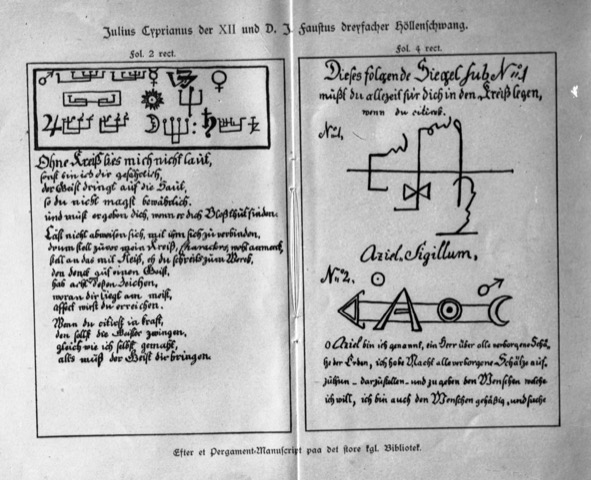 Julius Cyprianus der XII und D. J. Faustus dreyfacher Höllenschwang.
Fol. 2 rect.
Ohne Kreiß lies mich nicht laut,
sonst bin ich dir gefährlich,
der Geist dringt auf die Haut,
so du nicht magst bewährlich.
und muß ergeben dich, wenn er dich
Läst nicht abweisen sich, mit ihm sich zu verbinden,
drum stell zuvor mein Kreiß, Characters, wohl
das mit Fleiß, eh du schreitst zum Werck,
den denck auf einen Geist,
hab acht dessen Zeichen,
woran dir liegt am meist,
wirst du erreichen.
Wenn du citirst in kraft,
den sollst die Geister zwingen,
gleich wie ich selbst gemacht,
alls muß der Geist dir bringen.
Fol. 4 rect.
Dieses folgende Siegel sub N: 1
mußt du allezeit für dich in den Kreiß legen,
wenn du citirst.
N: 1.
Aziel. Sigillum,
N: 2.
Aziel bin ich genannt, ein Herr über alle verborgene Schä-
tze der Erden, ich habe Macht alle verborgene Schätze auf-
zuthun - darzustellen - und zu geben den Menschen welche
ich will, ich bin auch den Menschen gehäßig, und suche
Efter et Pergament-Manuscript paa det store kgl. Bibliotek.